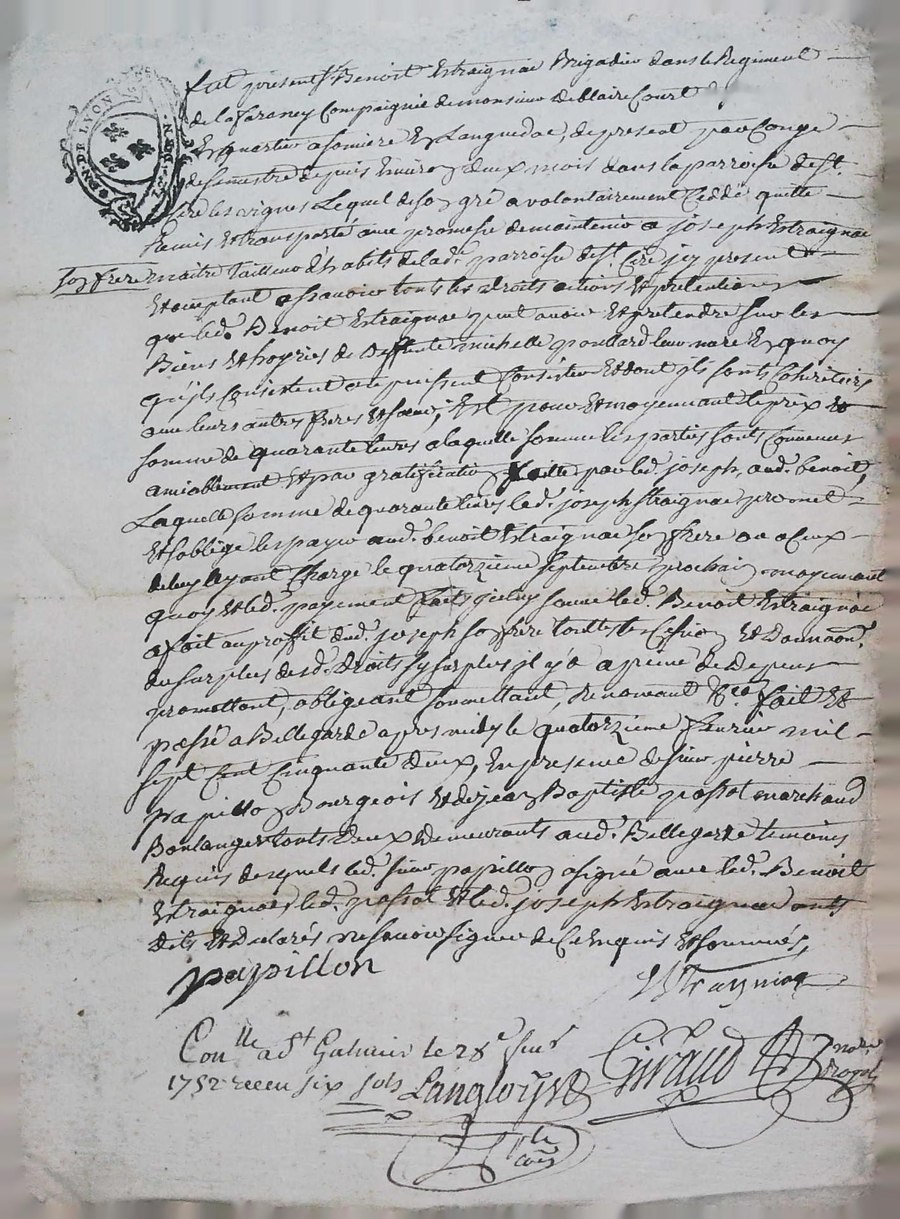 GEN. DE LYON
fut present Benoit Estraignac Brigadier dans le Regiment
de la Compagnie de monsieur de Blaire Court
En quartier a Somiere En Languedoc, de present par Congé
de semestre depuis Environ deux mois dans la parroisse de St.
Cire les vignes Lequel de son gré a volontairement Ceddé quitté
remis Et transporté avec promesse de maintenir a joseph Estraignac
son frere maitre Tailleur d'habits de lad. parroisse de St. Cire jcy present
Et acceptant assavoir tous les droits actions Et pretentions
que led. Benoit Estraignac peut avoir Et pretendre sur les
Biens Et hoyries de Deffunte michelle ponsard leur mere En quoy
qu'ils Consistent et puissent Consister Et dont ils sont Coheritiers
avec leurs autres freres Et soeur, Est pour Et moyennant le prix Et
somme de quarante livres a laquelle somme les parties sont Convenues
amiablement Et par gratiffication faitte par led. joseph, aud. benoit,
Laquelle somme de quarante livres led. joseph Estraignac promet
Et s'oblige les payer aud. benoit Estraignac son frere ou a Ceux
de luy ayant Charge le quatorzieme septembre prochain moyennant
quoy Et led. payement fait jcelluy somme led. Benoit Estraignac
a fait au proffit dud. joseph son frere touttes Cession Et Donnaon.
du surplus desd. Droits sy surplus il y a a peine de Depens
promettant, obligeant soumettant, Renonceant &ca. fait Et
passé a Bellegarde apres midy le quatorzieme fevrier mil
sept Cent Cinquante deux, En presence de sieur pierre
papillon Bourgeois Et de jean Baptiste passot marchand
Boulanger touts deux Demeurants aud. Bellegarde temoins
Requis desquels led. sieur papillon a signé avec led. Benoit
Estraignac, led. passot Et led. joseph Estraignac onts
dits Et Declarés ne scavoir signer de Ce Enquis Et sommés,
papillon
Estrayniac
Conlle. a St Galmier le 28e
1752 receu six sols Langloys
Giraud
nore. royal